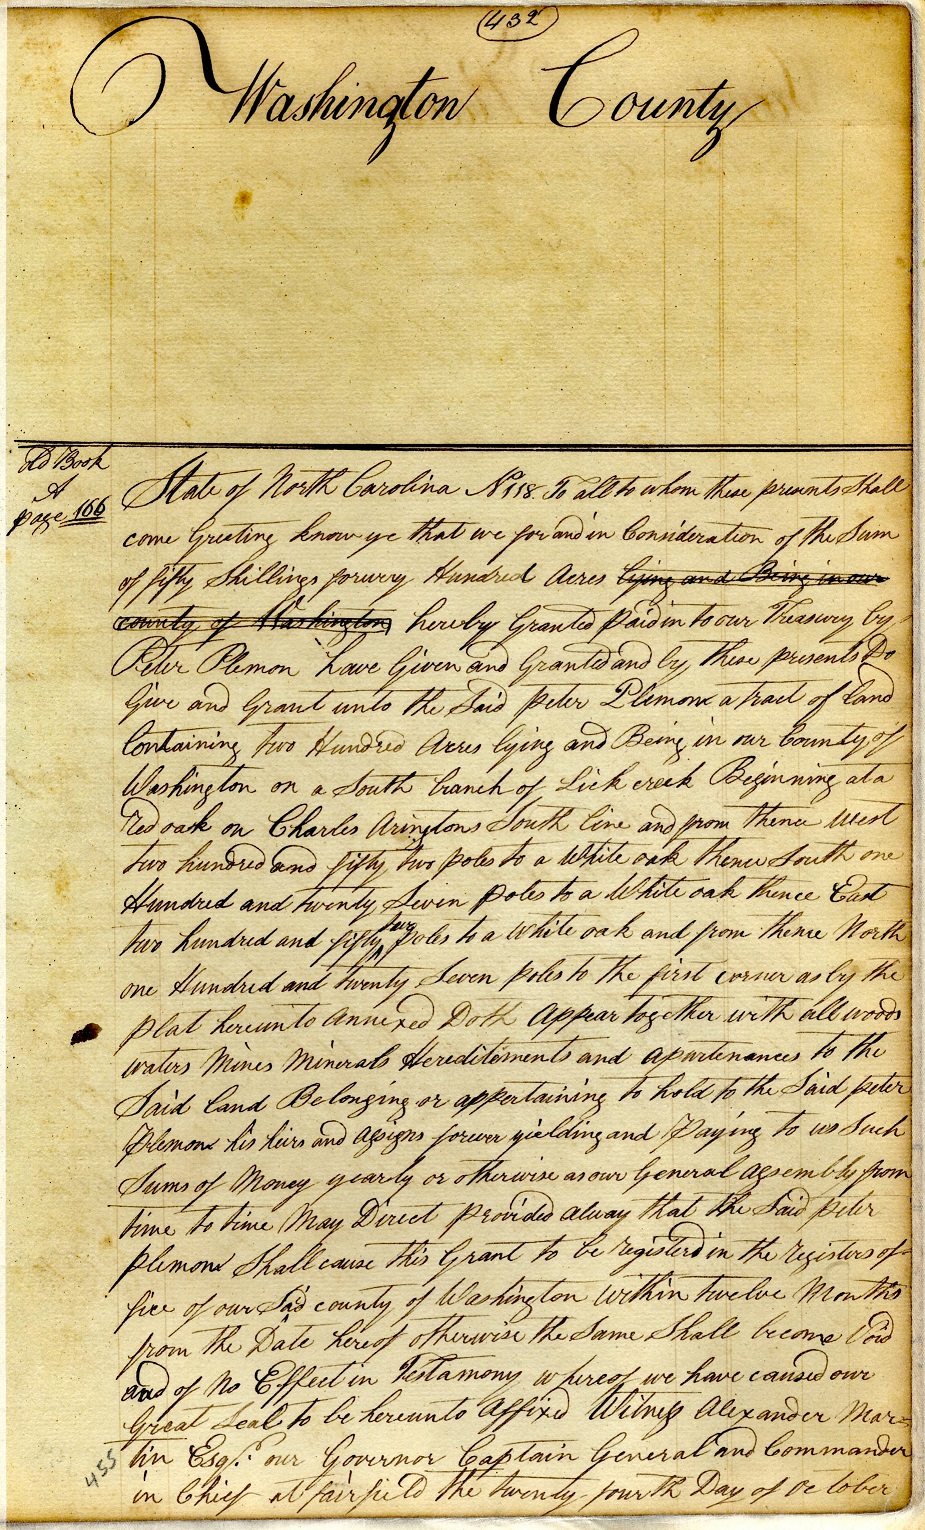 432
Washington County
Old Book
A
page 166
State of North Carolina No 118. To all to whom these presents Shall
come Greeting know ye that we for and in Consideration of the Sum
of fifty Shillings forevery Hundred Acres lying and Being in our
county of Washington hereby Granted paid in to our Treasury by
Peter Plemon have Given and Granted and by these presents Do
Give and Grant unto the Said peter Plemons a tract of Land
Containing two Hundred Acres lying and Being in our County of
Washington on a South branch of Lick creek Beginning at a
red oak on Charles Aringtons South line and from thence West
two hundred and fifty two poles to a White oak thence South one
Hundred and twenty Seven poles to a White oak thence East
two hundred and fifty two poles to a White oak and from thence North
one Hundred and twenty Seven poles to the first corner as by the
plat hereunto Annexed Doth Appear together with all woods
waters Mines Minerals Hereditements and Apartenances to the
Said land Belonging or appertaining to hold to the Said peter
Plemons his heirs and assigns forever yielding and Paying to us Such
Sums of Money yearly or otherwise as our General Assembly from
time to time May Direct provided alway that the Said peter
plemons Shall cause this Grant to be registerd in the registers of-
fice of our Sad county of Washington within twelve Months
from the Date hereof otherwise the Same Shall become Void
and of No Effect in Testamony whereof we have caused our
Great Seal to be hereunto Affixed Witness Alexander Mar=
tin Esqr. our Governor Captain General and Commander
in Chief at fairfield the twenty fourth Day of October
455